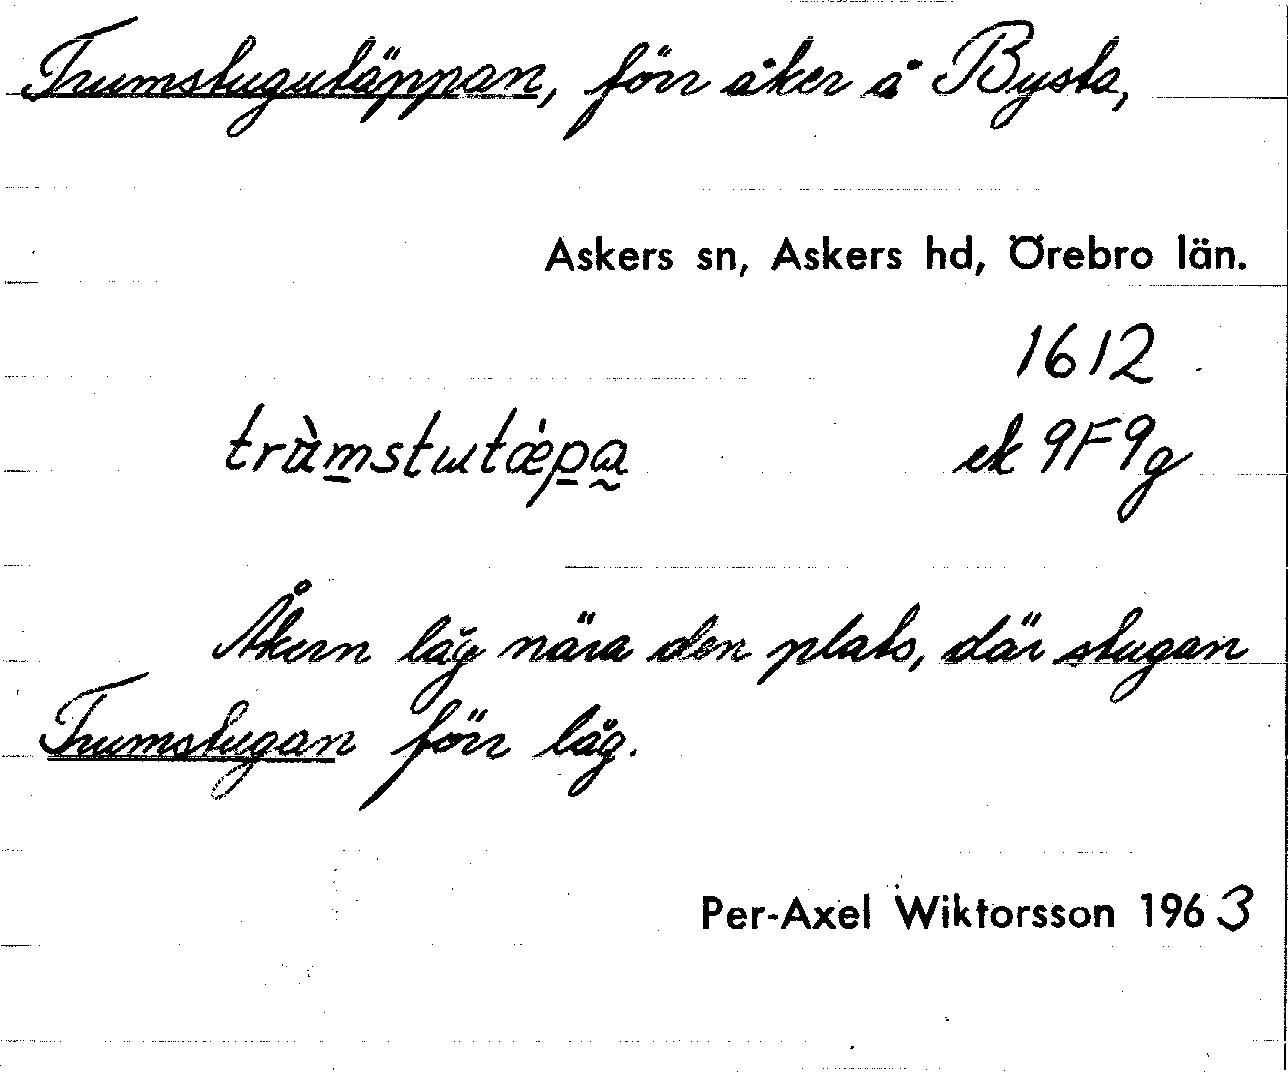 Trumstugutäppan, förr åker å Bysta,
Askers sn, Askers hd, Örebro län.
1612
trùmstutǽpa ek 9F9g
Åkern låg nära den plats, där stugan
Trumstugan förr låg.
Per-Axel Wiktorsson 1963